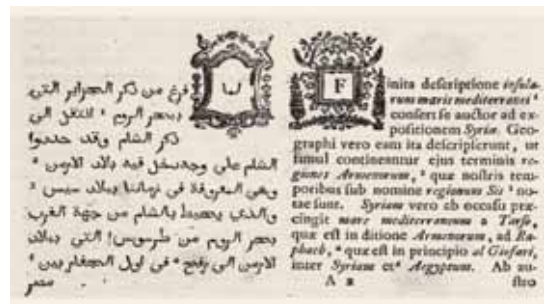 فرغ من ذكر الجزاير التي
ببحر الروم * انتقل الى
ذكر الشام وقد حددوا
الشام على وجه يدخل فيه بلاد الارمن *
وهي المعروفة في زماننا ببلاد سيس *
والذي يحيط بالشام من جهة الغرب
بحر الروم من طرسوس التي ببلاد
الارمن الى رفح * في اول الجفار بين *
مصر
F
inita descriptione insula-
rum maris mediterranei
confert se auctor ad ex-
positionem Syriæ. Geo-
graphi vero eam ita descripserunt, ut
simul contineantur ejus terminis re-
giones Armenorum, quæ nostris tem-
poribus sub nomine regionum Sis no-
tæ sunt. Syriam vero ab occasu præ-
cingit mare mediterraneum a Tarso,
quæ est in ditione Armenorum, ad Ra-
phach, quæ est in principio al Giofari,
inter Syriam et Aegyptum. Ab au-
A 2 stro